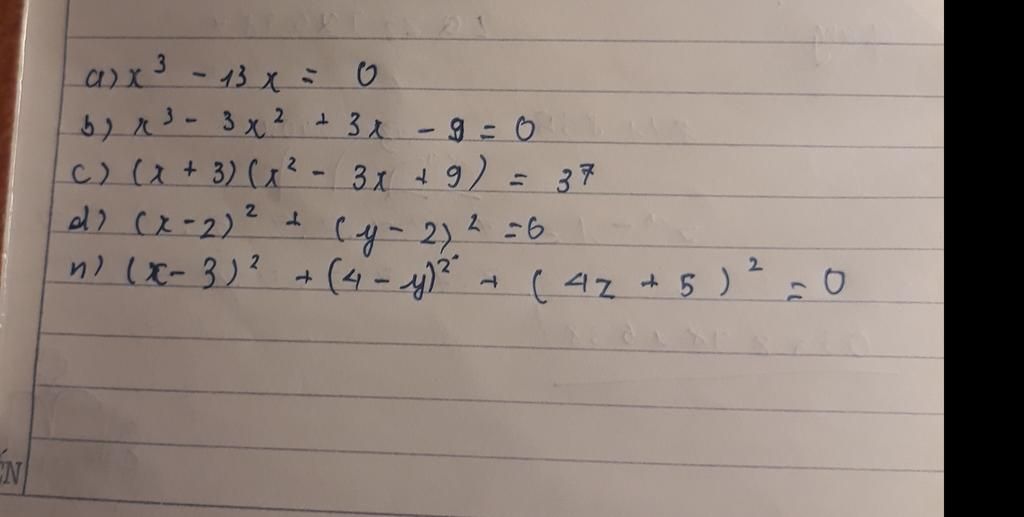 a) x³ - 13x = 0
b) x³ - 3x² + 3x - 9 = 0
c) (x + 3)(x² - 3x + 9) = 37
d) (x - 2)² + (y - 2)² = 6
n) (x - 3)² + (4 - y)² + (4z + 5)² = 0
ẾN